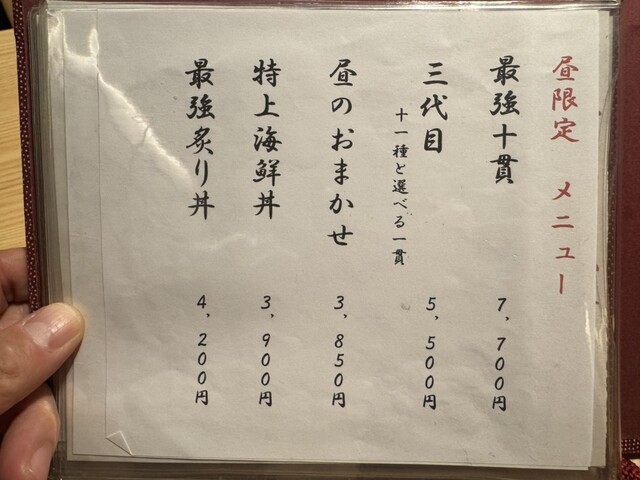 昼限定 メニュー
最強十貫 7,700円
三代目 5,500円
十一種と選べる一貫
昼のおまかせ 3,850円
特上海鮮丼 3,900円
最強炙り丼 4,200円